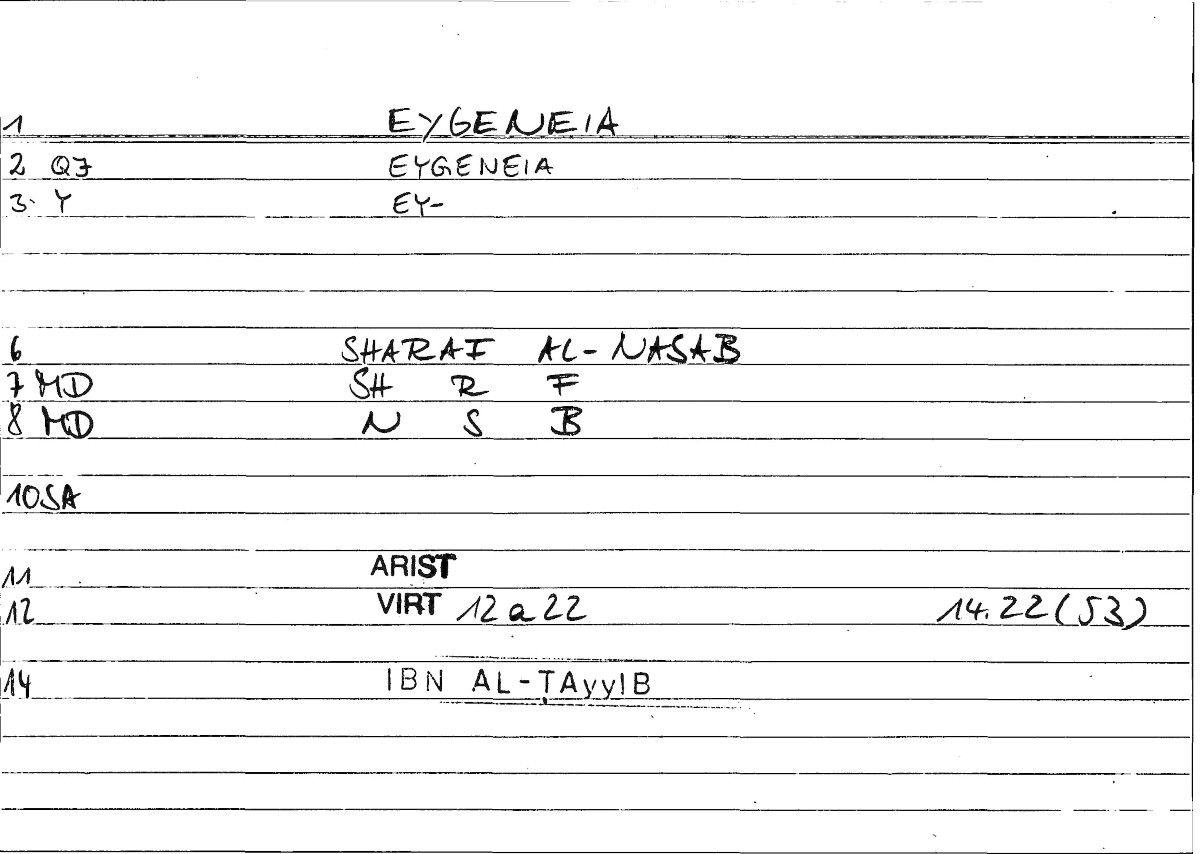 1 EYGENEIA
2 QJ EYGENEIA
3. Y EY-
6 SHARAF AL-NASAB
7 MD SH R F
8 MD N S B
10 SA
11 ARIST
12 VIRT 12a22 14.22(53)
14 IBN AL-ṬAyyIB